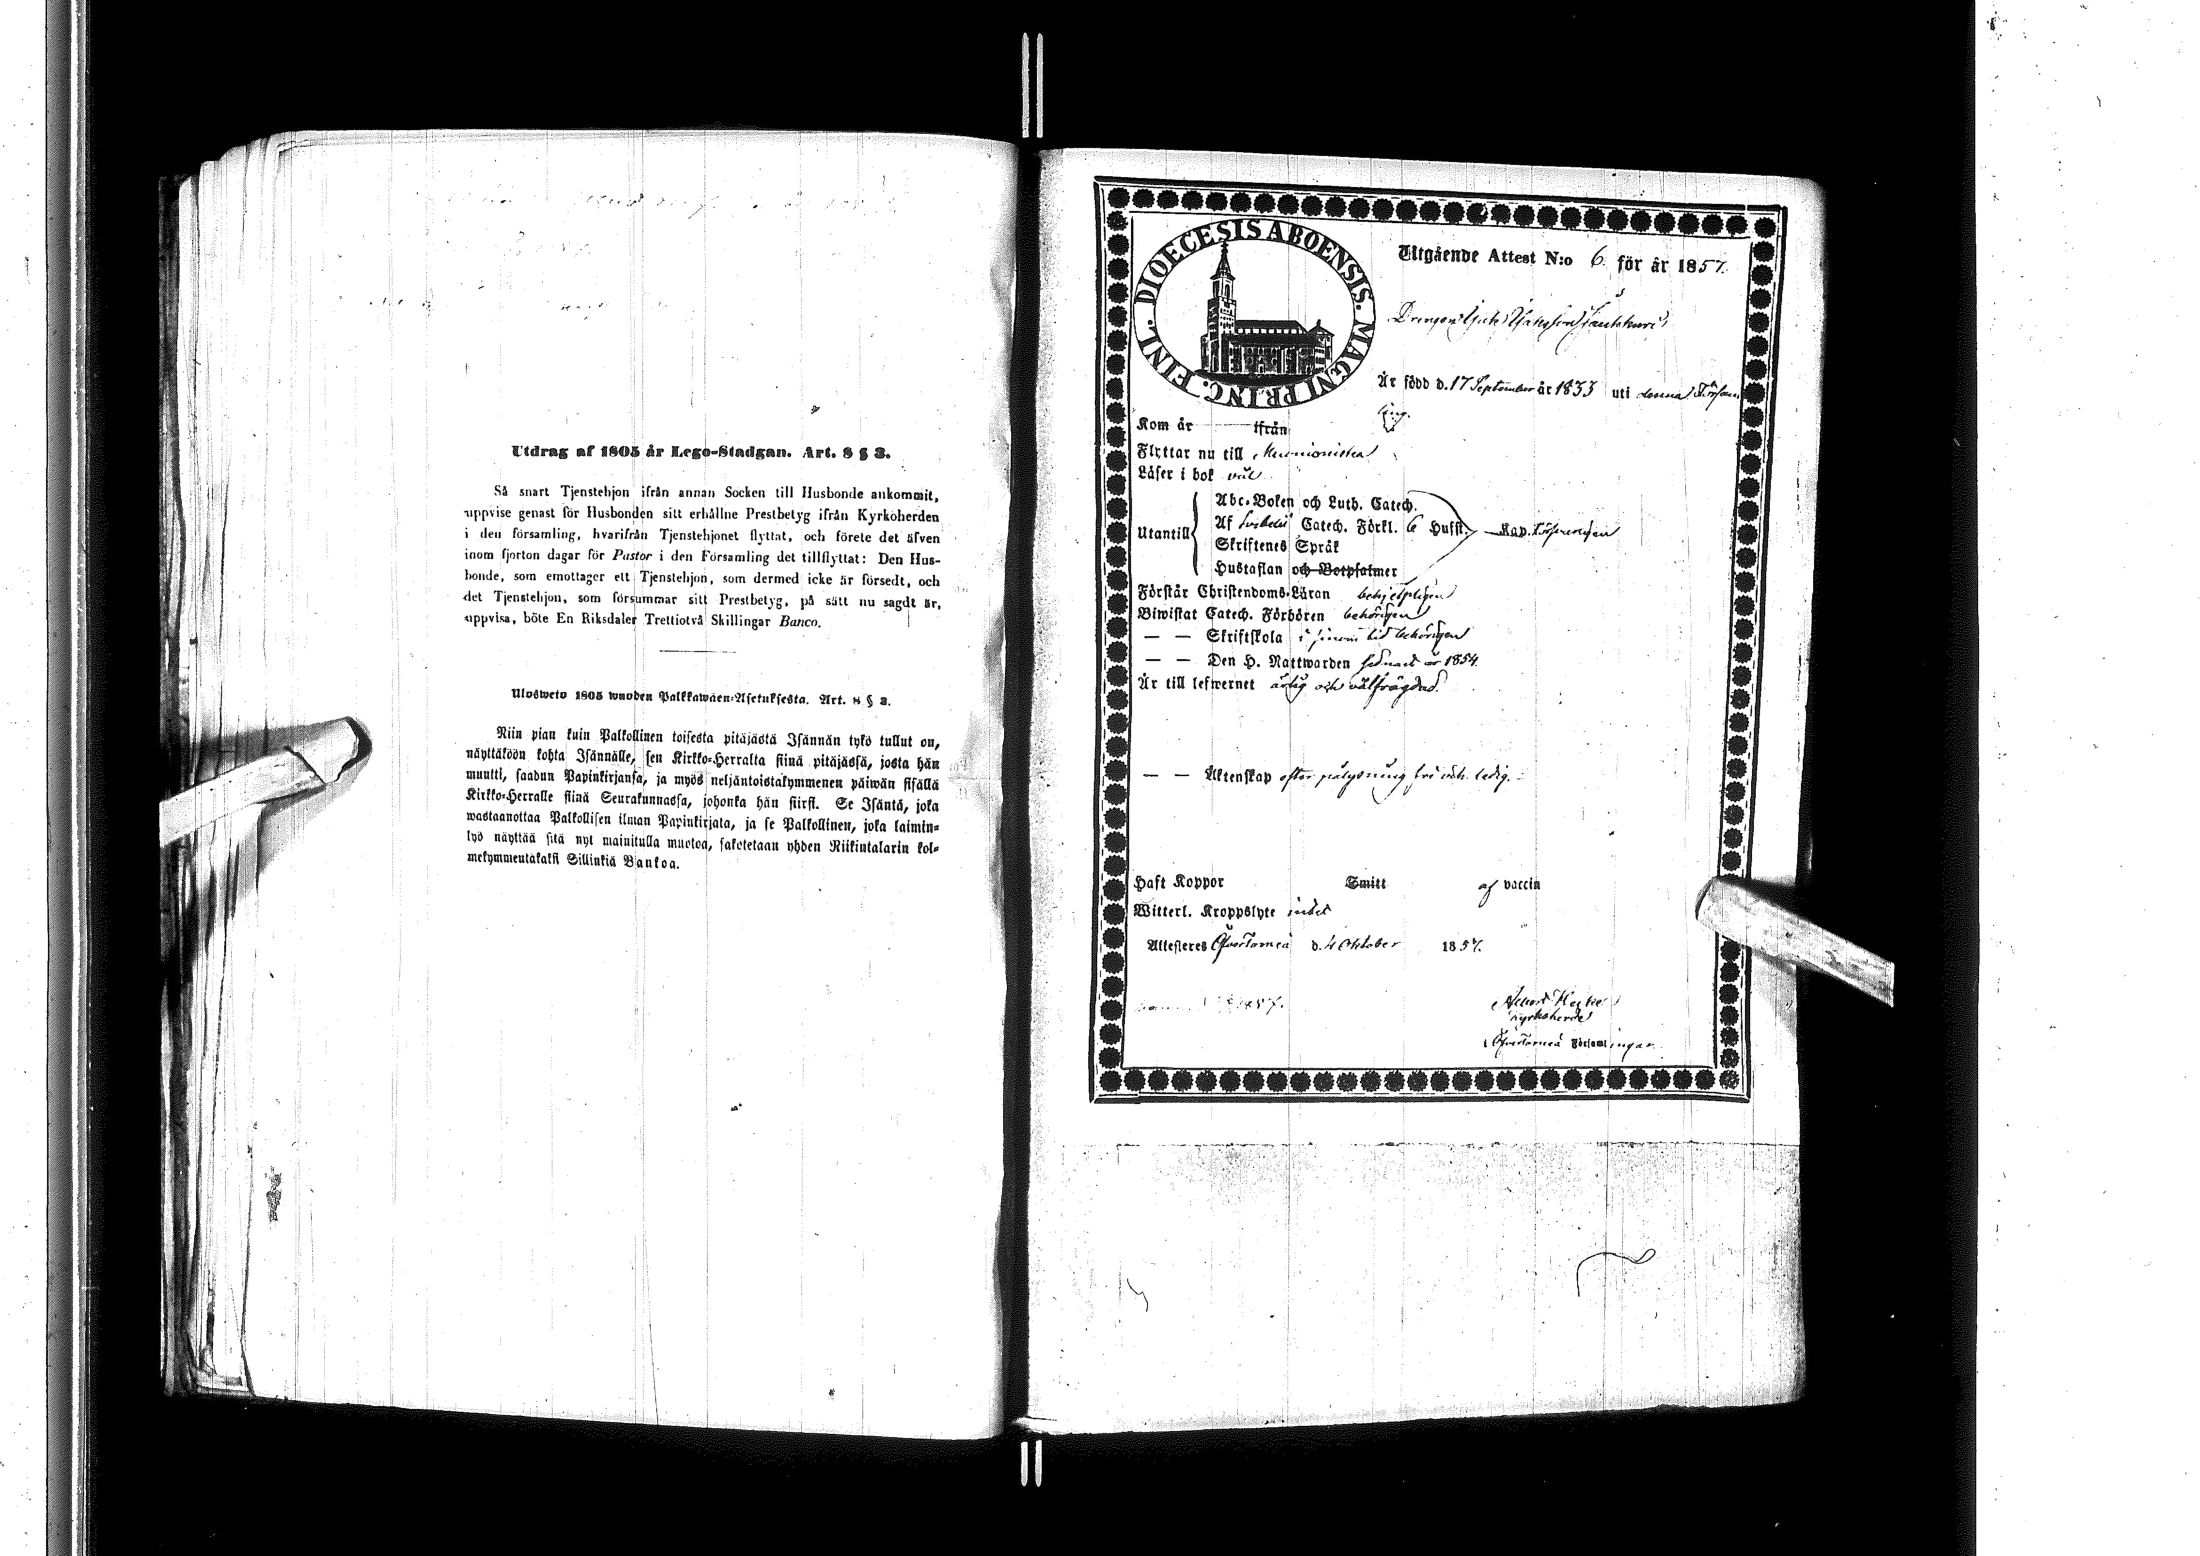 Utdrag af 1805 år Lego-Stadgan. Art. 8 § 3.
Så snart Tjenstehjon ifrån annan Socken till Husbonde ankommit,
uppvise genast för Husbonden sitt erhållne Prestbetyg ifrån Kyrkoherden
i den församling, hvarifrån Tjenstehjonet flyttat, och förete det äfven
inom fjorton dagar för Pastor i den Församling det tillflyttat: Den Hus-
bonde, som emottager ett Tjenstehjon, som dermed icke är försedt, och
det Tjenstehjon, som försummar sitt Prestbetyg, på sätt nu sagdt är,
uppvisa, böte En Riksdaler Trettiotvå Skillingar Banco.
Ulosweto 1805 wuoden Palkkawäen-Asetuksesta. Art. 8 § 3.
Niin pian kuin Palkollinen toisesta pitäjästä Isännän tykö tullut on,
näyttäköön kohta Isännälle, sen Kirkko-Herralta siinä pitäjässä, josta hän
muutti, saadun Papinkirjansa, ja myös neljäntoistakymmenen päiwän sisällä
Kirkko-Herralle siinä Seurakunnassa, johonka hän siirsi. Se Isäntä, joka
wastaanottaa Palkollisen ilman Papinkirjata, ja se Palkollinen, joka laimin-
lyö näyttää sitä nyt mainitulla muotoa, sakotetaan yhden Riikintalarin kol-
mekymmentäkaksi Sillinkiä Bankoa.
DIOECESIS ABOENSIS. MAGNI PRINC. FINL.
Utgående Attest N:o 6 för år 1857.
Drengen
Är född d. 17 September år 1833 uti denna Försam
ling.
Kom år ifrån
Flyttar nu till Muonioniska
Läser i bok väl
Abc-Boken och Luth. Catech.
Utantill Af Svebelii Catech. Förkl. 6 Husst.
Skriftenes Språk
Hustaflan och Botpsalmer
Förstår Christendoms-Läran behjelpligen
Biwistat Catech. Förhören behörigen
— — Skriftskola i sinom tid behörigen
— — Den H. Nattwarden sednast år 1854.
Är till lefwernet ärlig och välfrägdad.
— — Äktenskap efter pålysning fri och ledig.
Haft Koppor Smitt af vaccin
Witterl. Kroppslyte intet
Attesteres Öfvertorneå d. 4 Oktober 1857.
1857.
Kyrkoherde
i Öfvertorneå Församlingar.